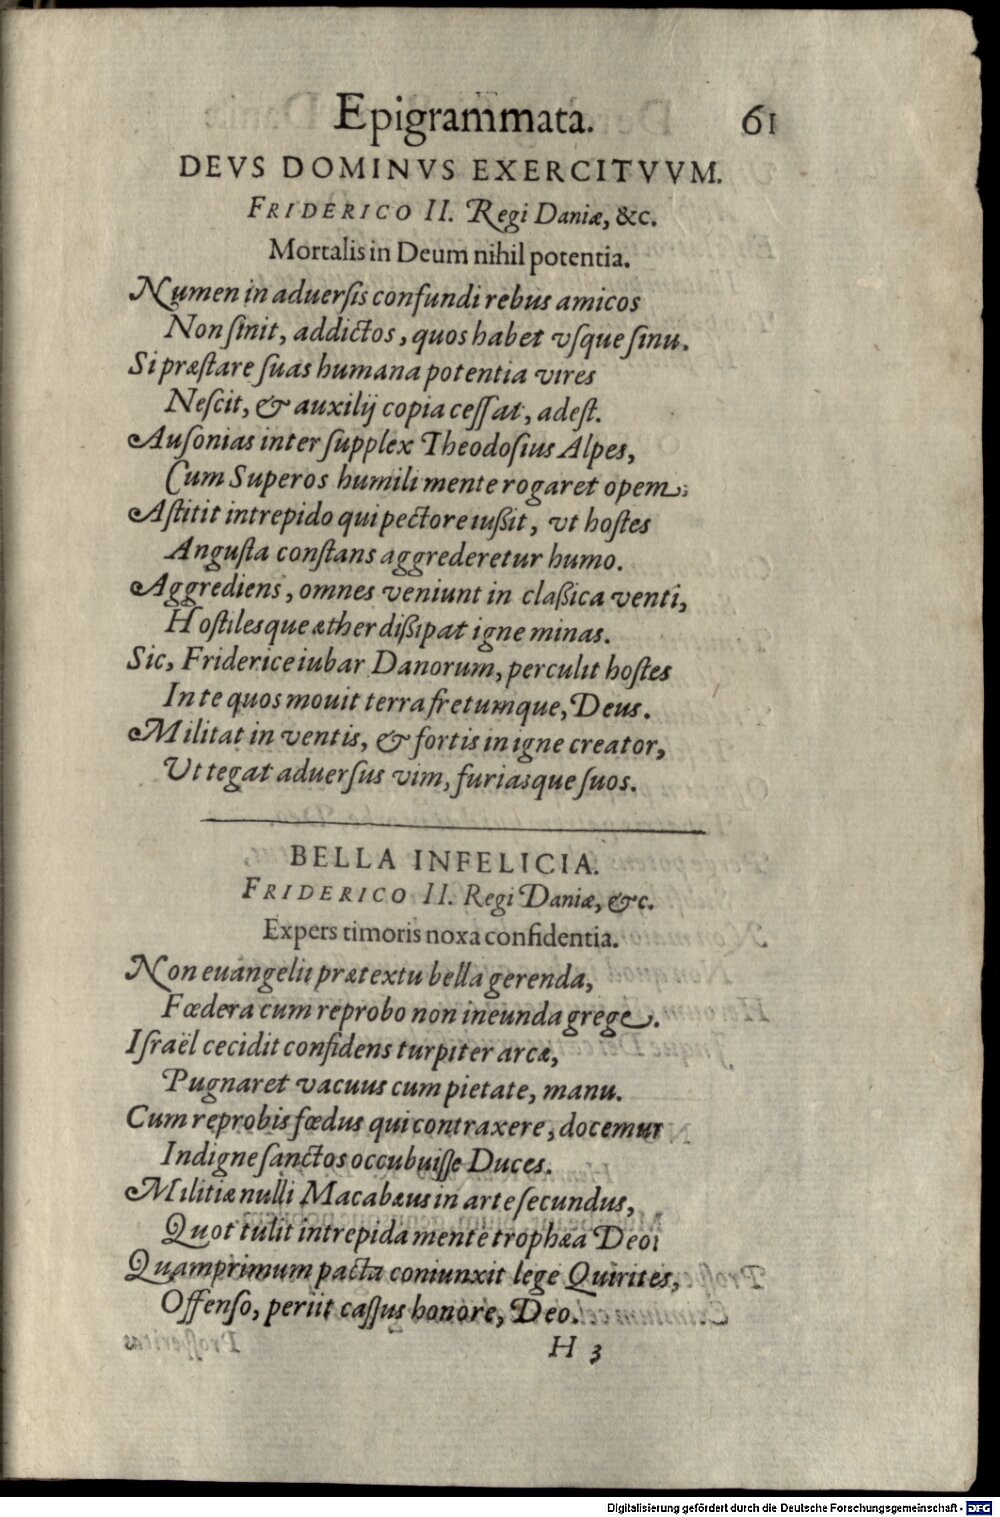 Epigrammata. 61
DEVS DOMINVS EXERCITVVM.
FRIDERICO II. Regi Daniæ, &c.
Mortalis in Deum nihil potentia.
Numen in aduerſis confundi rebus amicos
Non ſinit, addictos, quos habet vſque ſinu.
Si præſtare ſuas humana potentia vires
Neſcit, & auxilij copia ceſſat, adeſt.
Auſonias inter ſupplex Theodoſius Alpes,
Cum Superos humili mente rogaret opem;
Aſtitit intrepido qui pectore iußit, vt hoſtes
Anguſta conſtans aggrederetur humo.
Aggrediens, omnes veniunt in claßica venti,
Hoſtilesque æther dißipat igne minas.
Sic, Friderice iubar Danorum, perculit hoſtes
In te quos mouit terra fretumque, Deus.
Militat in ventis, & fortis in igne creator,
Ut tegat aduerſus vim, furiasque ſuos.
BELLA INFELICIA.
FRIDERICO II. Regi Daniæ, &c.
Expers timoris noxa confidentia.
Non euangelii prætextu bella gerenda,
Fœdera cum reprobo non ineunda grege.
Iſraël cecidit confidens turpiter arcæ,
Pugnaret vacuus cum pietate, manu.
Cum reprobis fœdus qui contraxere, docemur
Indigne ſanctos occubuiſſe Duces.
Militiæ nulli Macabæus in arte ſecundus,
Quot tulit intrepida mente trophæa Deo?
Quamprimum pacta coniunxit lege Quirites,
Offenſo, periit caſſus honore, Deo.
H 3
Digitalisierung gefördert durch die Deutsche Forschungsgemeinschaft - DFG